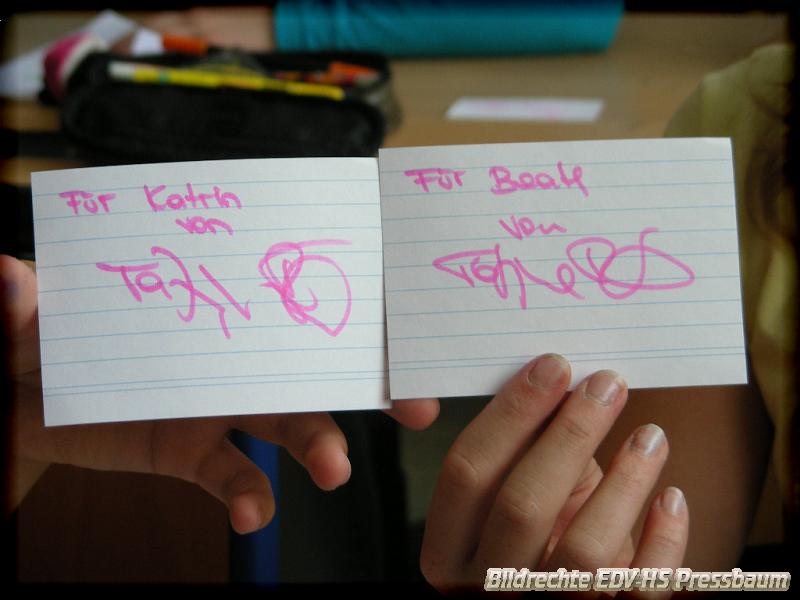 Für Katrin
von
Für Beate
von
Bildrechte EDV-HS Pressbaum